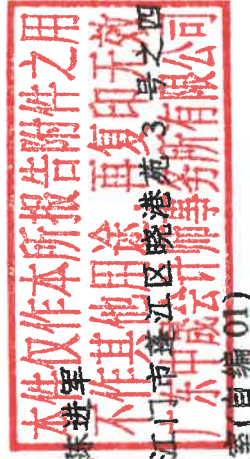 本件仅作本所报告附件之用
不作其他用途 再复印无效
会计师事务所有限公司
陈进军
江门市蓬江区晓港苑 3 号之四
(自编 01)